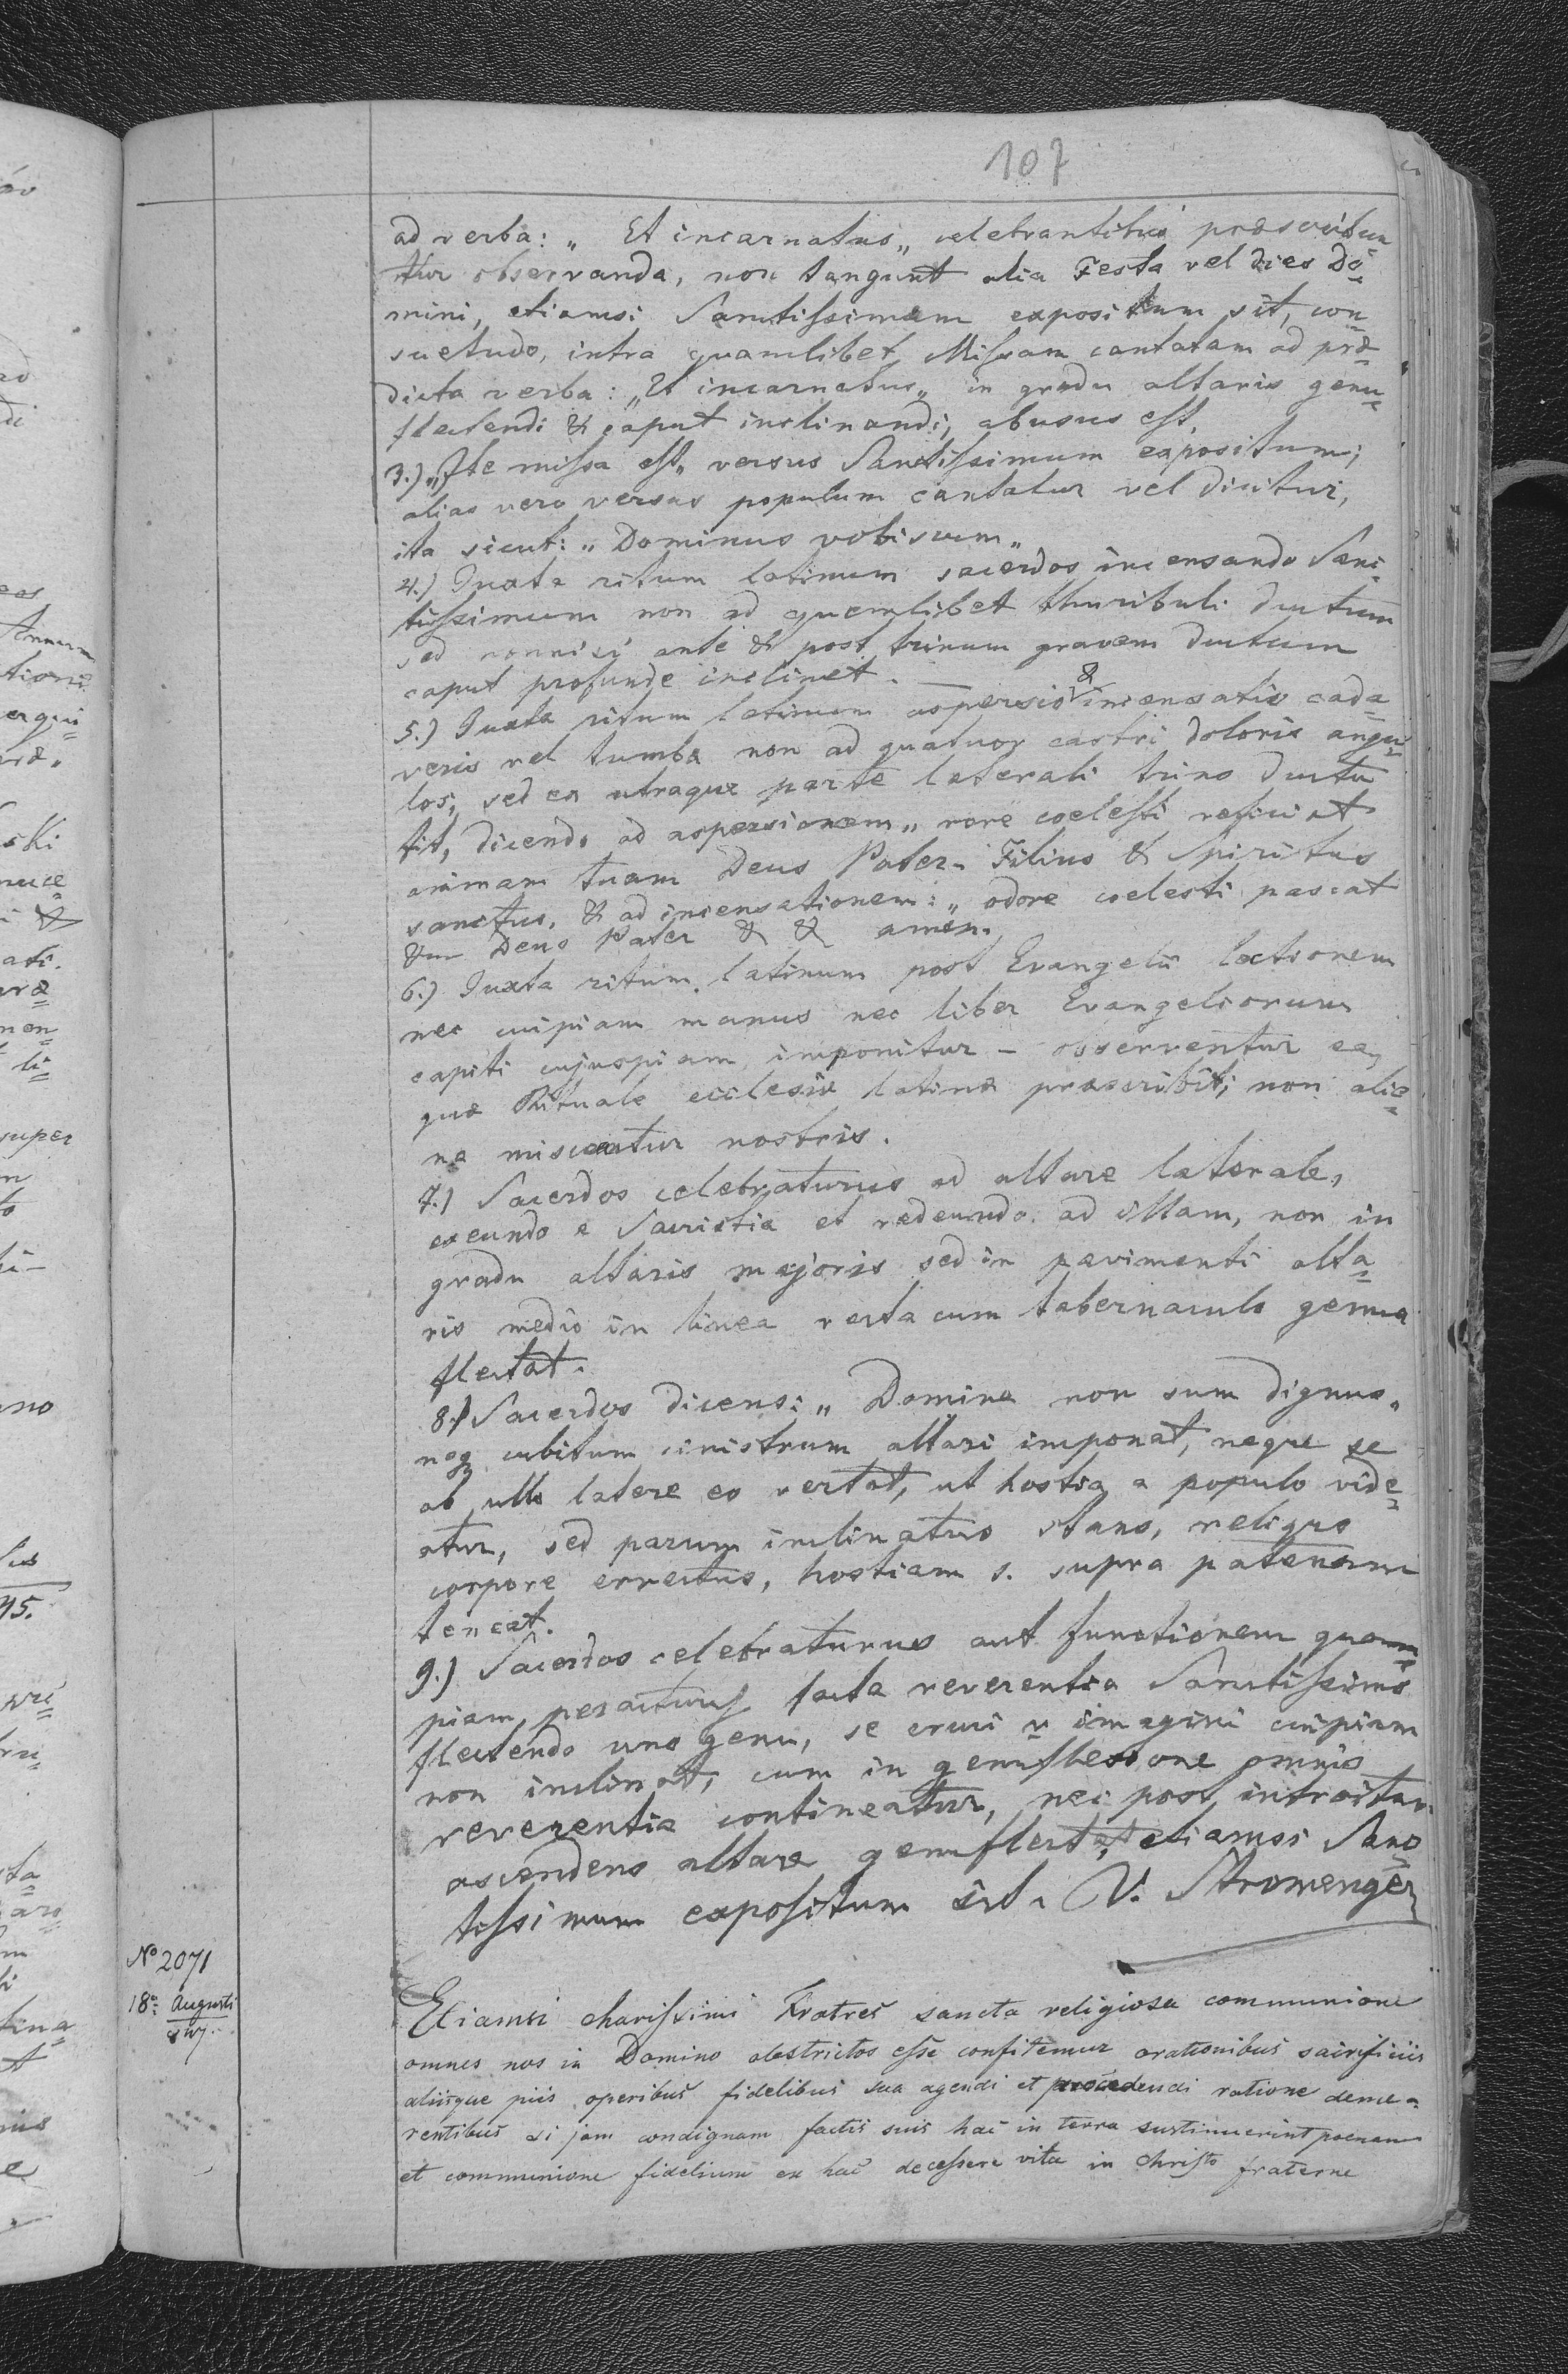 107
ad verba: „ Et incarnatus„ celebrantibus præscribun
tur observanda, non tangunt alia Festa vel dies Do-
mini, etiamsi Sanctissimum expositum sit, con
suetudo, intra quamlibet Missam cantatam ad præ-
dicta verba: „Et incarnatus„ in gradu altaris genu-
flectendi & caput inclinandi, abusus est.
3.) „Ite missa est„ versus Sanctissimum expositum;
alias vero versus populum cantatur vel dicitur,
ita sicut: „Dominus vobiscum„
4.) Juxta ritum latinum sacerdos incensando Sanc-
tissimum non ad quemlibet thuribuli ductum
sed nonnisi ante & post trinum gravem ductum
caput profunde inclinet. —
5.) Juxta ritum latinum aspersio & incensatio cada-
veris vel tumba non ad quatuor castri doloris angu-
los, sed ex utraque parte laterali trino ductu
fit, dicendo ad aspersionem „ rore coelesti reficiat
animam tuam Deus Pater - Filius & Spiritus
sanctus, & ad incensationem: „ odore coelesti pascat
Deus Pater & & amen.
6.) Juxta ritum latinum post Evangelii lectionem
nec cuipiam manus nec liber Evangeliorum
capiti cujuspiam imponitur – observentur ea,
quæ Rituale ecclesiæ latinæ præscribit, non alie-
na misceatur nostris.
7.) Sacerdos celebraturus ad altare laterale,
exeundo e Sacristia et redeundo ad illam, non in
gradu altaris majoris sed in pavimenti alta-
ris medio in linea recta cum tabernaculo genua
flectat.
8.) Sacerdos dicens: „ Domine non sum dignus„
neq cubitum sinistrum altari imponat, neque se
ab ullo latere eo vertat, ut hostia a populo vide-
atur, sed parum inclinatus stans, reliquo
corpore errectus, hostiam s. supra patenam
teneat.
9.) Sacerdos celebraturus aut functionem quam-
piam peracturus facta reverentia Sanctissimo
flectendo uno genu, se cruci v imagini cuipiam
non inclinat, cum in genuflexione omnis
reverentia contineatur, nec post introitum
ascendens altare genuflectat, etiamsi Sanc-
tissimum expositum sit. V. Stromenger
No 2071
18a Augusti
847.
Etiamsi charissimi Fratres sancta religiosa communione
omnes nos in Domino obstrictos esse confitemur orationibus sacrificiis
aliisque piis operibus fidelibus sua agendi et procedendi ratione deme-
rentibus si jam condignam factis suis hac in terra sustinuerint poenam
et communione fidelium ex hac decessere vita in Christo fraterne